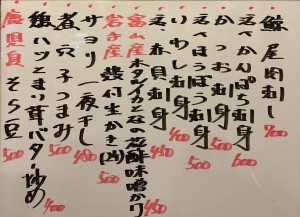 鯨尾肉刺し 700
えべかんぱち刺身 600
かつお刺身 500
えべほうぼう刺身 500
いわし刺身 400
えべ赤貝刺身 450
富山産 ホタルイカと菜の花酢味噌かけ 450
岩手産 殻付生かき(2ヶ) 500
サヨリ一夜干し 480
煮穴子つまみ 500
鶏ハツとまい茸バター炒め 400
鹿児島 そら豆 500